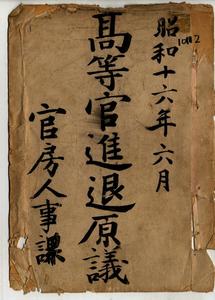 昭和十六年六月
高等官進退原議
官房人事課